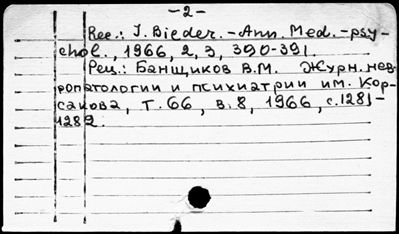 -2-
Rec.: J. Bieder. - Ann. Med. - psy-
chol., 1966, 2, 3, 390-391.
Рец.: Банщиков В.М. Журн. нев-
ропатологии и психиатрии им. Кор-
сакова, т. 66, в. 8, 1966, с. 1281-
1282.